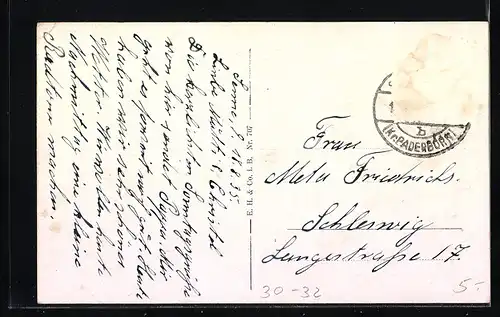 Senne, d. 18.8.35.
Liebe Mutti u. Christel
Die herzlichsten Sonntagsgrüße
von hier sendet Papa. Mir
geht es soweit noch gut. Heute
haben wir sehr schönes
Wetter. Wir wollen heute
Nachmittag eine kleine
Radtour machen.
E. H. & Co. i. B. Nr. 707
b
(Kr. PADERBORN)
Frau
Meta Friedrichs.
Schleswig
Langestraße 17.
30-32
5.-